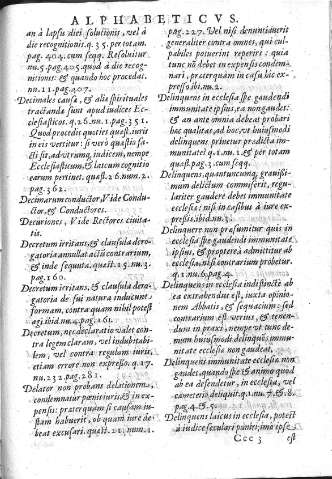 ALPHABETICVS.
an à lapsu diei solutionis, vel à
die recognitionis. q. 35. per totam.
pag. 404. cum seqq. Resoluitur.
nu. 5. pag. 405. quod à die recog-
nitionis: & quando hoc procedat.
nu. 11. pag. 407.
Decimales causæ, & aliæ spirituales
tractandæ sunt apud iudices Ec-
clesiasticos. q. 26. nu. 1. pag. 351.
Quod procedit quoties quæst. iuris
in eis vertitur: si verò quæstio fa-
cti sit, ad vtrumq; iudicem, nempe
Ecclesiasticum, & laicum cognitio
earum pertinet. quæst. 26. num. 2.
pag. 362.
Decimarum conductor, Vide Condu-
ctor, & Conductores.
Decuriones, Vide Rectores ciuita-
tis.
Decretum irritans, & clausula dero-
gatoria annullat actũ contrarium,
& inde sequuta. quæst. 25. nu. 3.
pag. 160.
Decretum irritans, & clausula dero-
gatoria de sui natura inducunt
formam, contra quam nihil potest
agi ibid. nu. 4. pag. 161.
Decretum, nec declaratio valet con-
tra legem claram, vel indubitabi-
lem, vel contra regulam iuris,
etiam errore non expresso. q. 17.
nu. 232. pag. 281.
Delator non probans delationem,
condemnatur pœnis iuris & in ex-
pensis: præterquàm si causam iu-
stam habuerit, ob quam iure de-
beat excusari. quæst. 21. num. 1.
pag. 227. Vel nisi denuntiauerit
generaliter contra omnes, qui cul-
pabiles potuerint reperiri: quia
tunc nõ debet in expensis condemn-
nari, præterquàm in casu hîc ex-
presso ibi. nu. 2.
Delinquens in ecclesia spe gaudendi
immunitate ipsius, ea non gaudet:
& an ante omnia debeat probari
hoc qualitas, ad hoc vt huiusmodi
delinquens priuetur prædicta im-
munitate? q. 1. nu. 1. & per totam
quæst. pag. 3. cum seqq.
Delinquens, quantumcunq; grauissi-
mum delictum commiserit, regu-
lariter gaudere debet immunitate
ecclesiæ: nisi in casibus à iure ex-
pressis. ibid. nu. 3.
Delinquere non præsumitur quis in
ecclesia spe gaudendi immunitate
ipsius, & proptereà admittitur ab
ecclesia, nisi contrarium probetur.
q. 1. nu. 6. pag. 4.
Delinquens in ecclesia indistinctè ab
ea extrahendus est, iuxta opinio-
nem Abbatis, & sequacium: sed
contrarium est verius, & tenen-
dum in praxi, nempe vt tunc de-
mum huiusmodi delinquẽs immu-
nitate ecclesiæ non gaudeat.
Delinquens immunitate ecclesiæ non
gaudet, quando spe & animo quod
ab ea defendetur, in ecclesia, vel
cœmeterio deliquit. q. 1. nu. 7. & 8.
pag. 4. & 5.
Delinquens laicus in ecclesia, potest
à iudice seculari puniri; imò ipse
Ccc 3 est